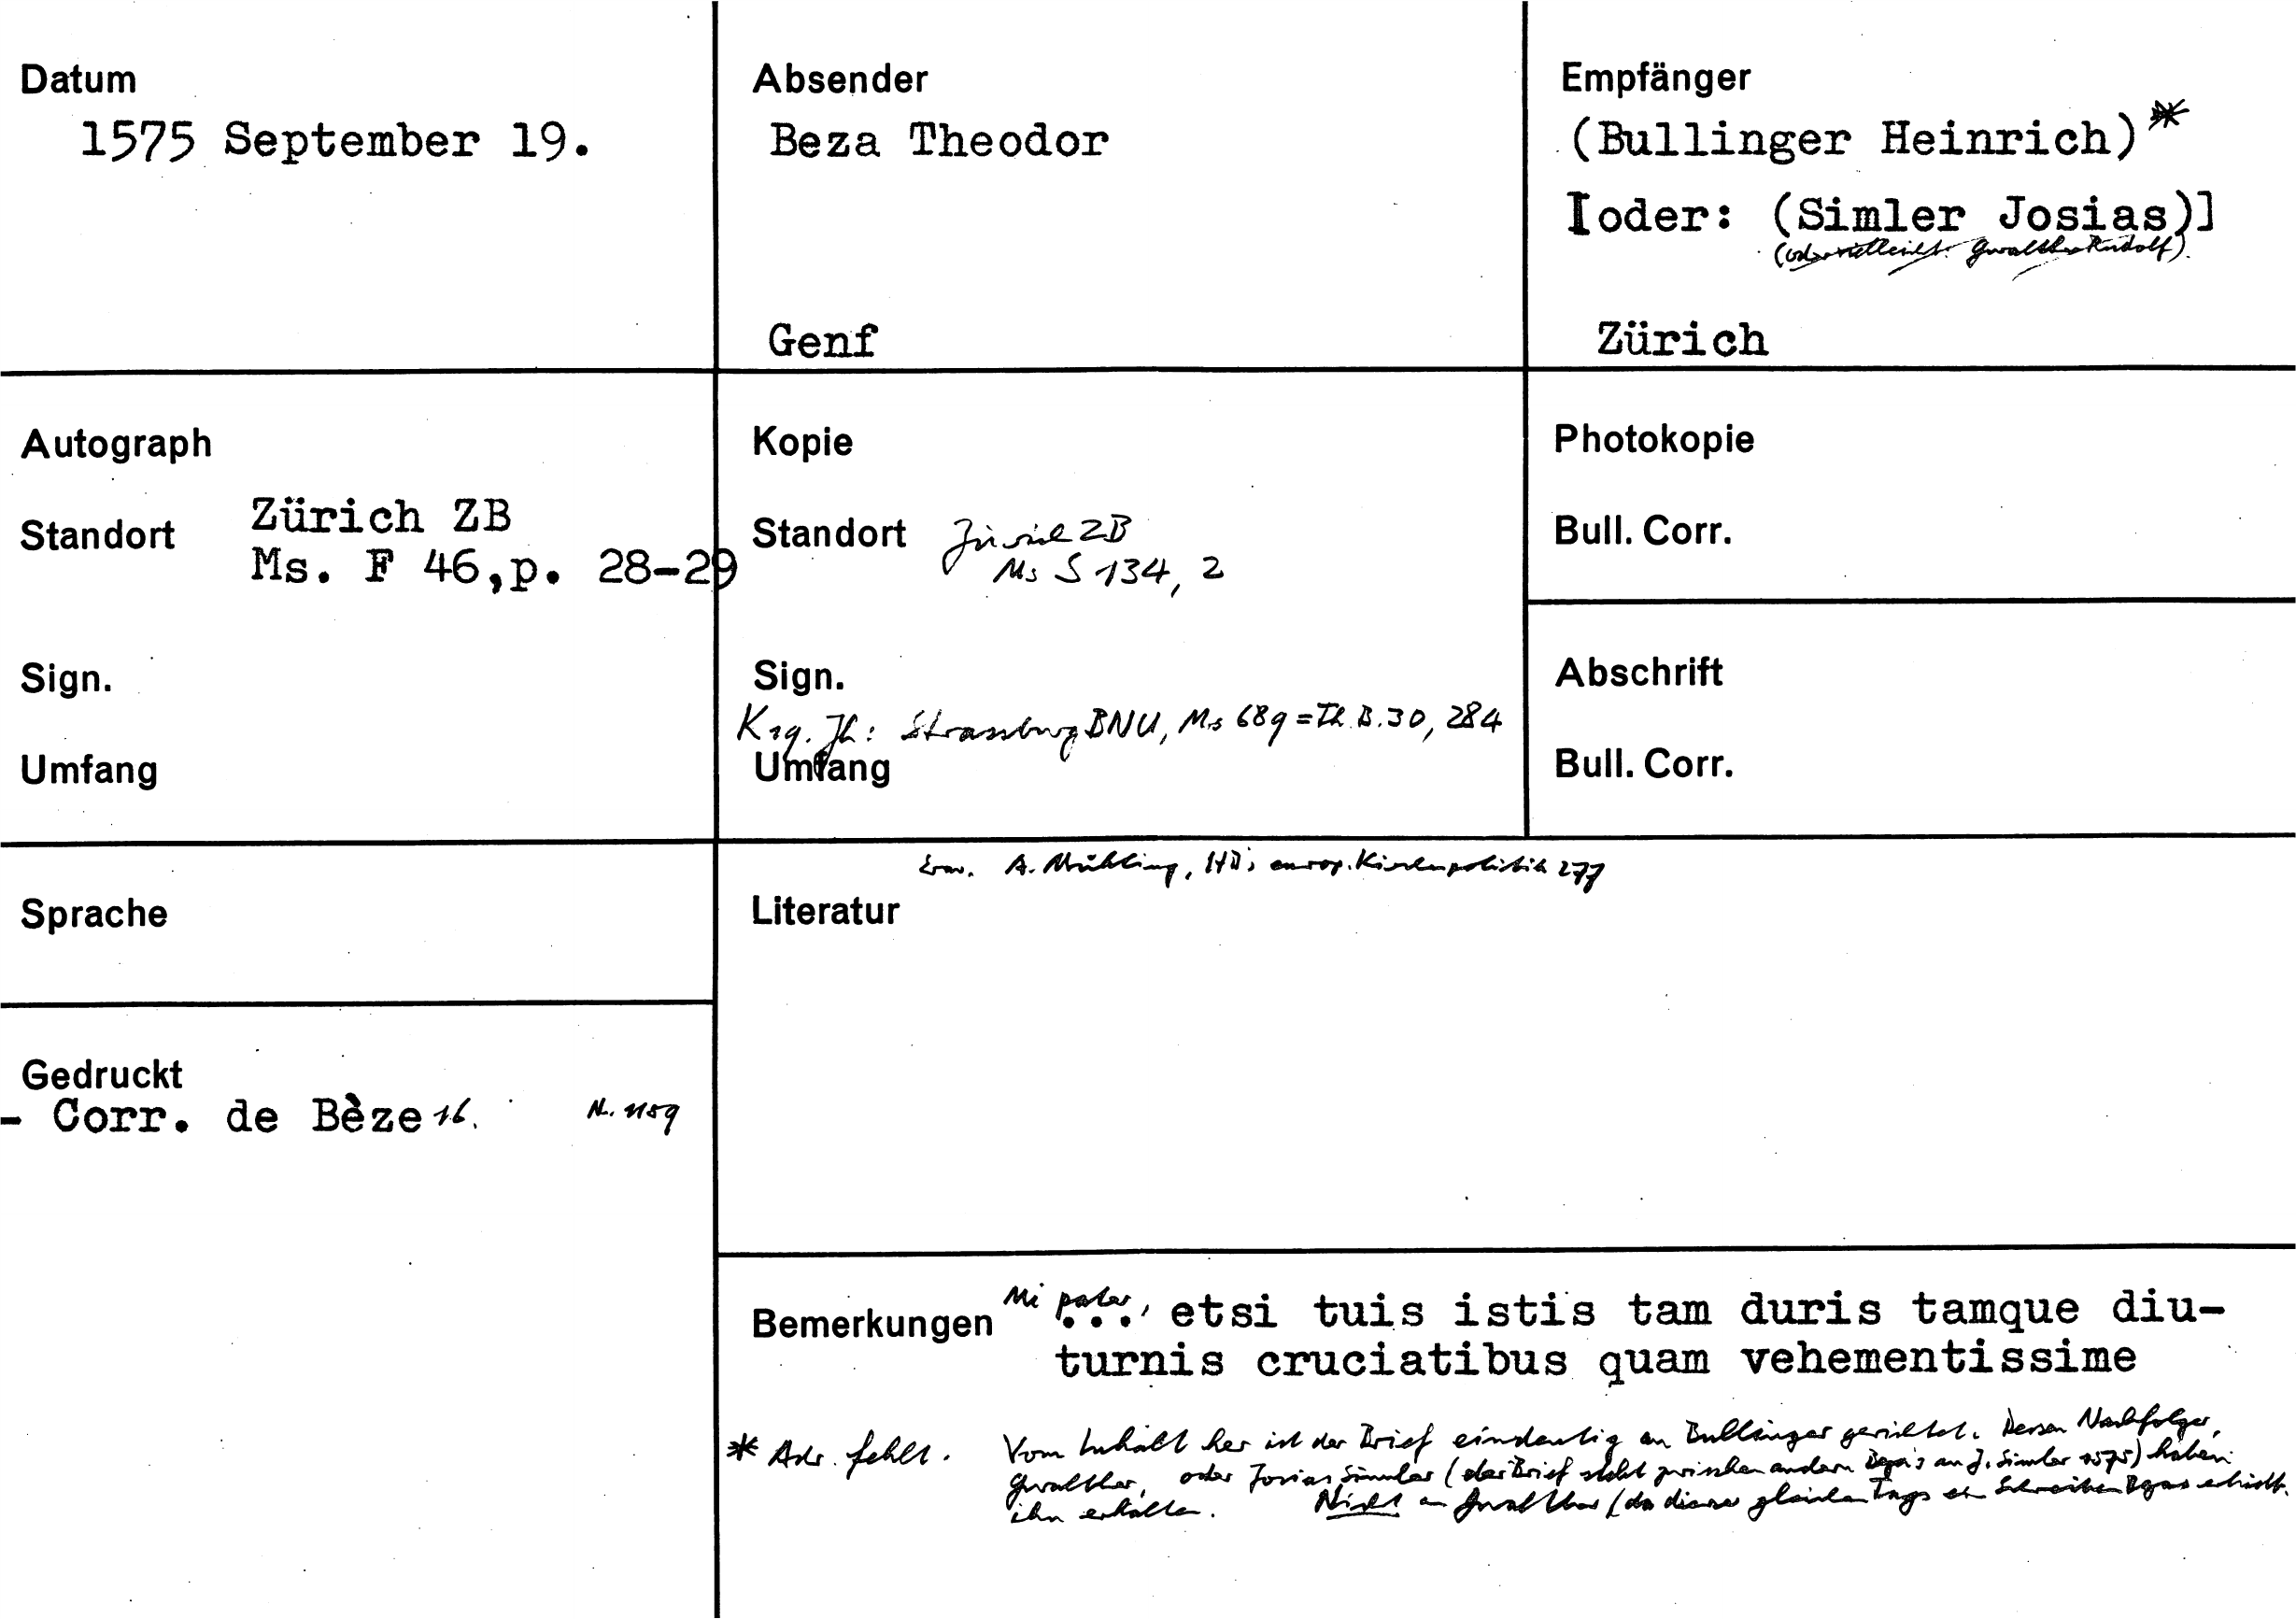 Datum
1575 September 19.
Absender
Beza Theodor
Genf
Empfänger
(Bullinger Heinrich)*
[oder: (Simler Josias)]
(oder vielleicht: Gwalther Rudolf).
Zürich
Autograph
Standort Zürich ZB
Ms. F 46,p. 28-29
Sign.
Umfang
Kopie
Standort Zürich ZB
Ms S 134, 2
Sign.
K 19. Jh: Strassburg BNU, Ms 689 = Th. B. 30, 284
Umfang
Photokopie
Bull. Corr.
Abschrift
Bull. Corr.
Sprache
Gedruckt
- Corr. de Bèze 16. N. 1159
Erw. A. Mühling, HBs europ. Kirchenpolitik 277
Literatur
Bemerkungen Mi pater, ... etsi tuis istis tam duris tamque diu-
turnis cruciatibus quam vehementissime
* Adr. fehlt. Vom Inhalt her ist der Brief eindeutig an Bullinger gerichtet. Dessen Nachfolger,
Gwalther, oder Josias Simler (der Brief steht zwischen andern Beza's an J. Simler 1575) haben
ihn erhalten. Nicht an Gwalther (da dieser gleichen Tags ein Schreiben Bezas erhielt.